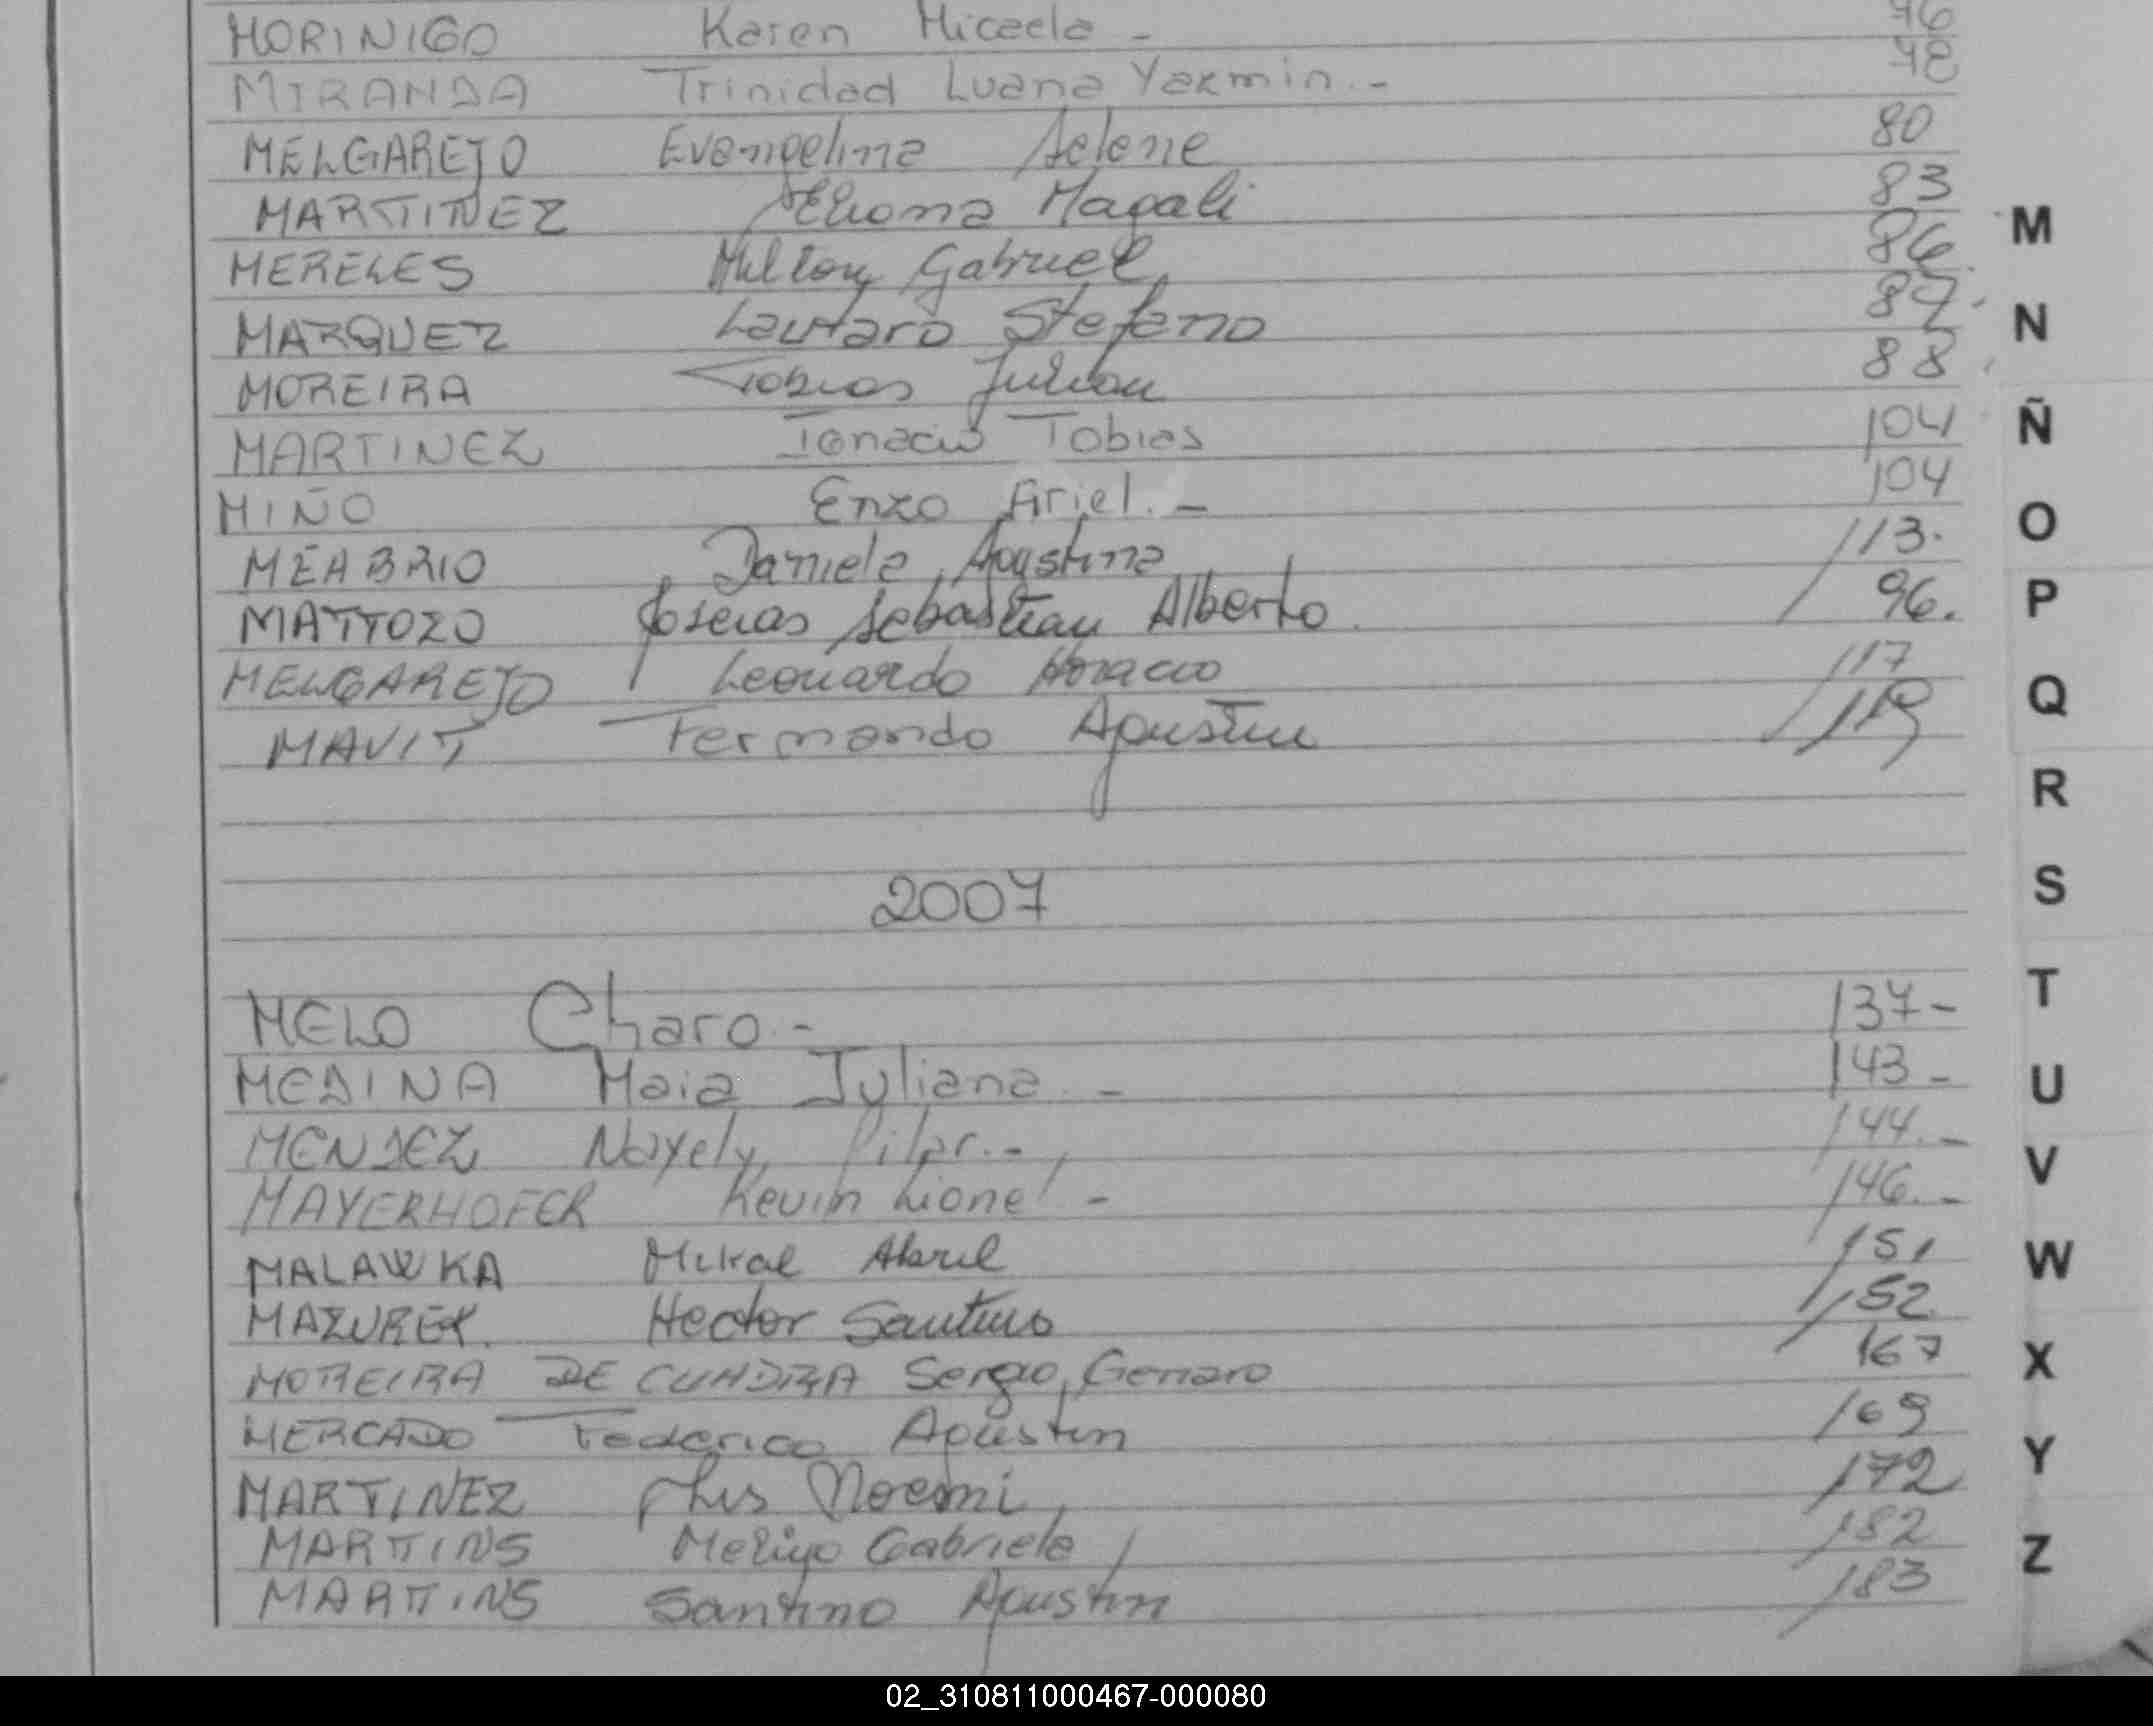 MORINIGO Karen Micaela - 76
MIRANDA Trinidad Luana Yazmin.- 78
MELGAREJO Evangelina Selene 80
MARTINEZ Magali 83
MERELES Milton Gabriel 86
MARQUEZ Lautaro Stefano 87
MOREIRA Tobias Julian 88
MARTINEZ Ignacio Tobias 104
MIÑO Enzo Ariel.- 104
MEABRIO Daniela Agustina 113.
MATTOZO Joseias Sebastian Alberto. 96.
MELGAREJO Leonardo Horacio 117
MAVIT Fernando Agustin 119
2007
MELO Charo.- 137-
MEDINA Maia Juliana.- 143-
MENDEZ Nayely Pilar.- 144.-
MAYERHOFER Kevin Lionel - 146.-
MALAWKA Abril 151
MAZUREK. Hector Santino 152
MOREIRA DE Sergio Genaro 167
MERCADO Federico Agustin 169
MARTINEZ Noemi 172
MARTINS Gabriela 182
MARTINS Santino Agustin 183
M
N
Ñ
O
P
Q
R
S
T
U
V
W
X
Y
Z
02_310811000467-000080